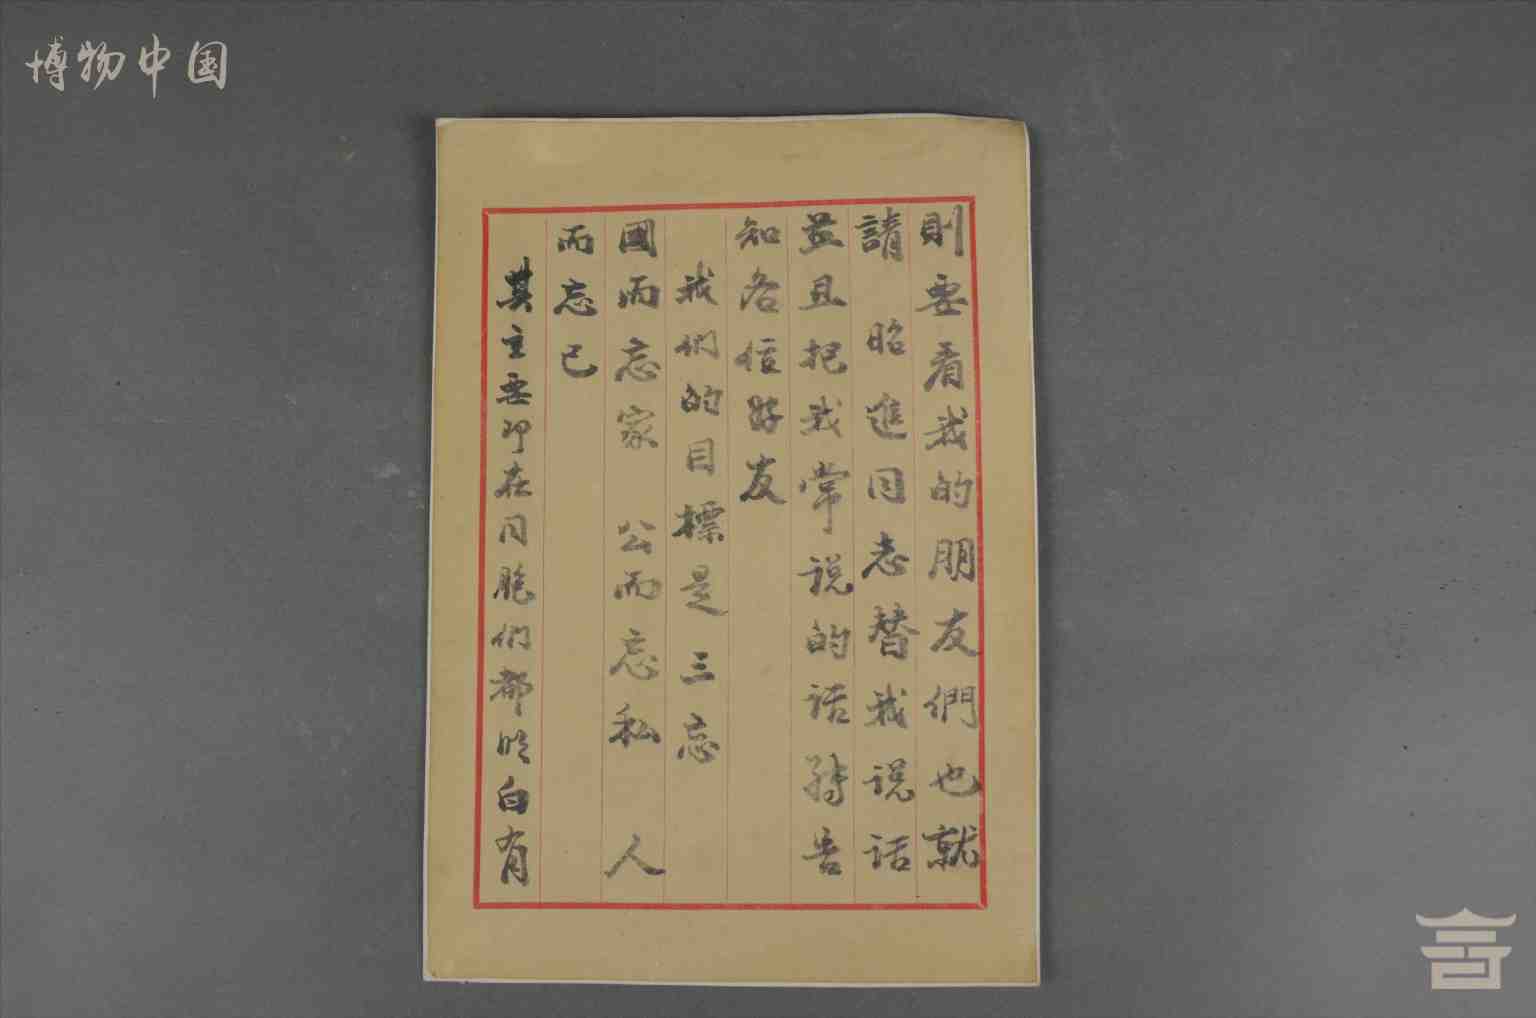 博物中国
則要看我的朋友們也就
請 昭進同志替我说話
並且把我常说的话转告
知各位好友
我們的目標是三忘
國而忘家 公而忘私 人
而忘己
其主要即在同胞們都明白有